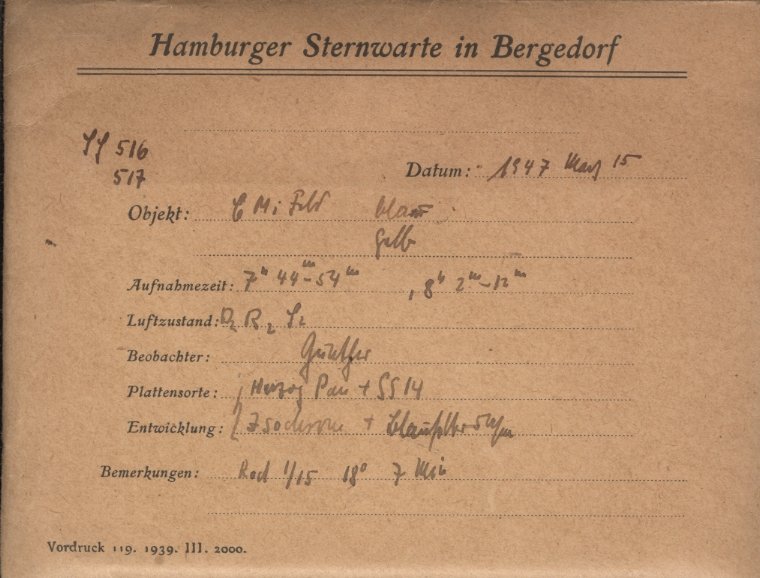 Hamburger Sternwarte in Bergedorf
516
517
Datum: 1947 März 15
Objekt: C Mi Feld blau
Gelb
Aufnahmezeit: 7h 44m-54m, 8h 2m-12m
Luftzustand: R2
Beobachter: Günther
Plattensorte: Herzog Pan +
Entwicklung: Isochrom +
Bemerkungen: Rod 1/15 18° 7 Min
Vordruck 119. 1939. III. 2000.